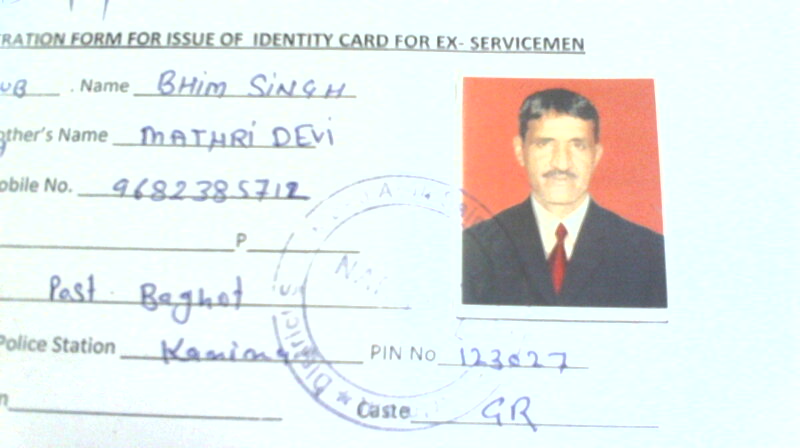 RATION FORM FOR ISSUE OF IDENTITY CARD FOR EX- SERVICEMEN
UB . Name BHIM SINGH
other's Name MATHRI DEVI
obile No. 9682385712
P
Post Baghot
Police Station PIN No 123027
n Caste GR
District